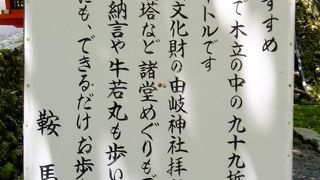 すすめ
で木立の中の九十九折
トルです
文化財の由岐神社拝
塔など諸堂めぐりもで
納言や牛若丸も歩い
にも、できるだけお歩
鞍馬